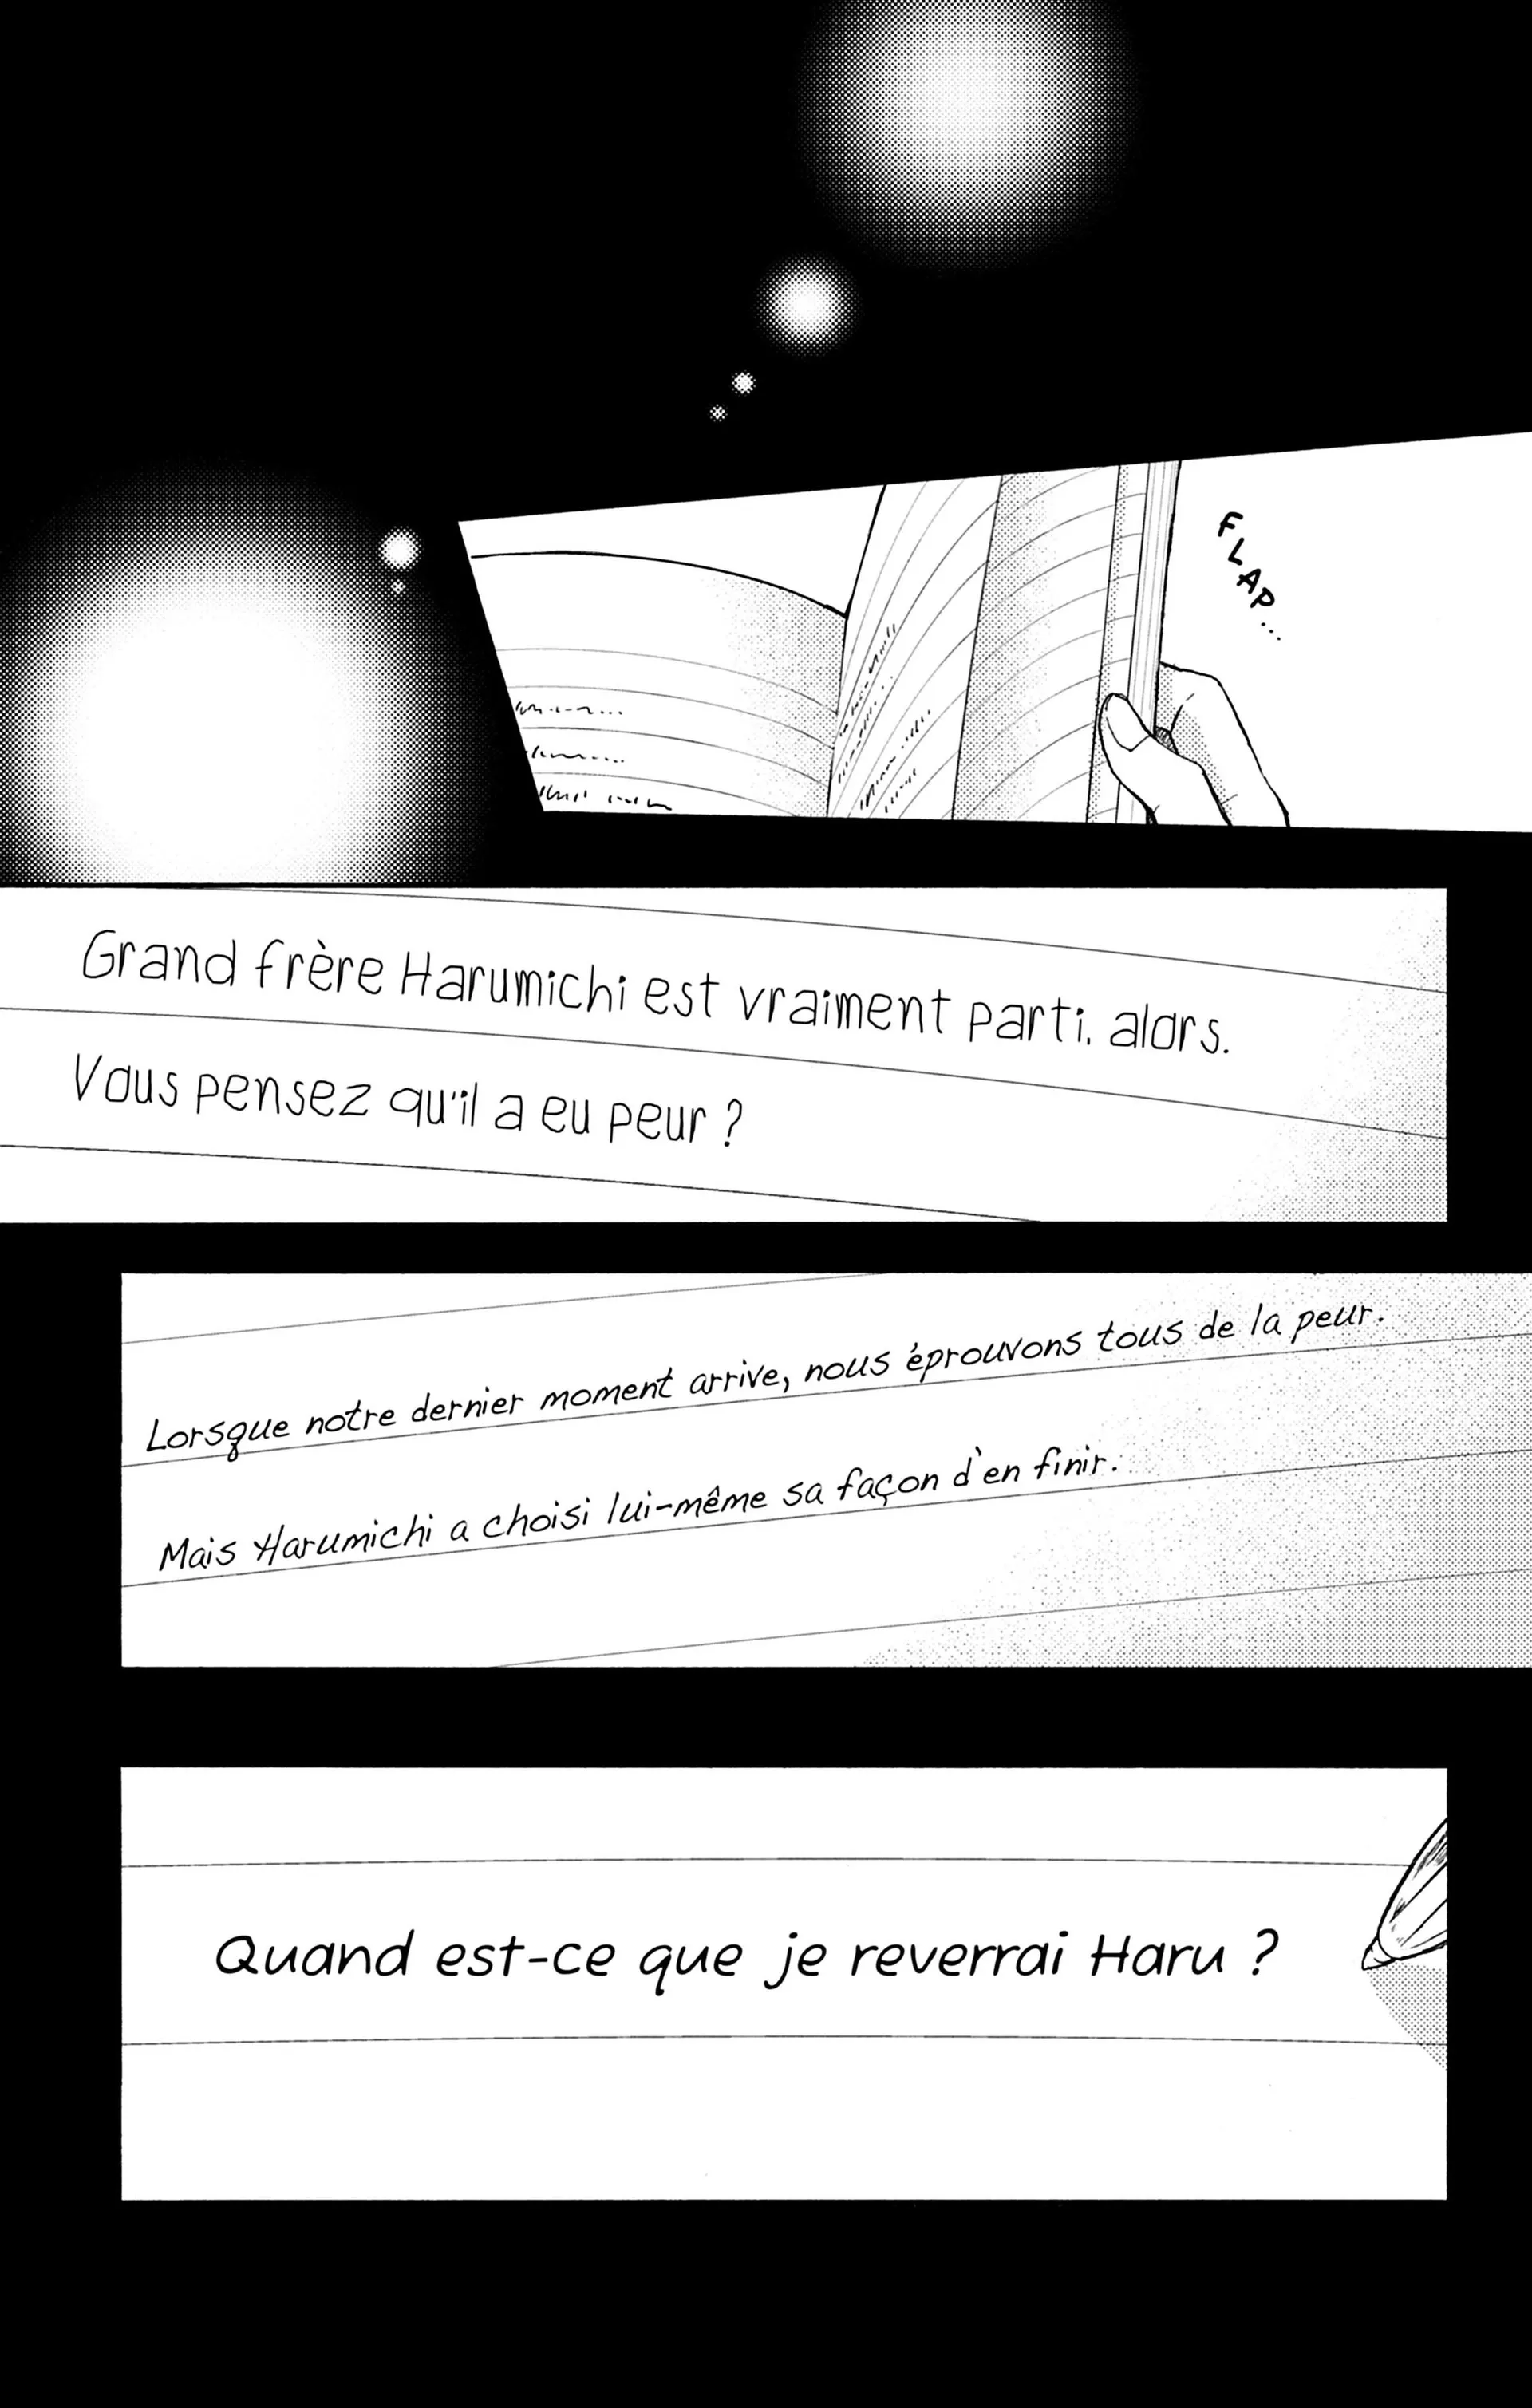 FLAP...
Grand frère Harumichi est vraiment parti, alors.
Vous pensez qu'il a eu peur ?
Lorsque notre dernier moment arrive, nous éprouvons tous de la peur.
Mais Harumichi a choisi lui-même sa façon d'en finir.
Quand est-ce que je reverrai Haru ?